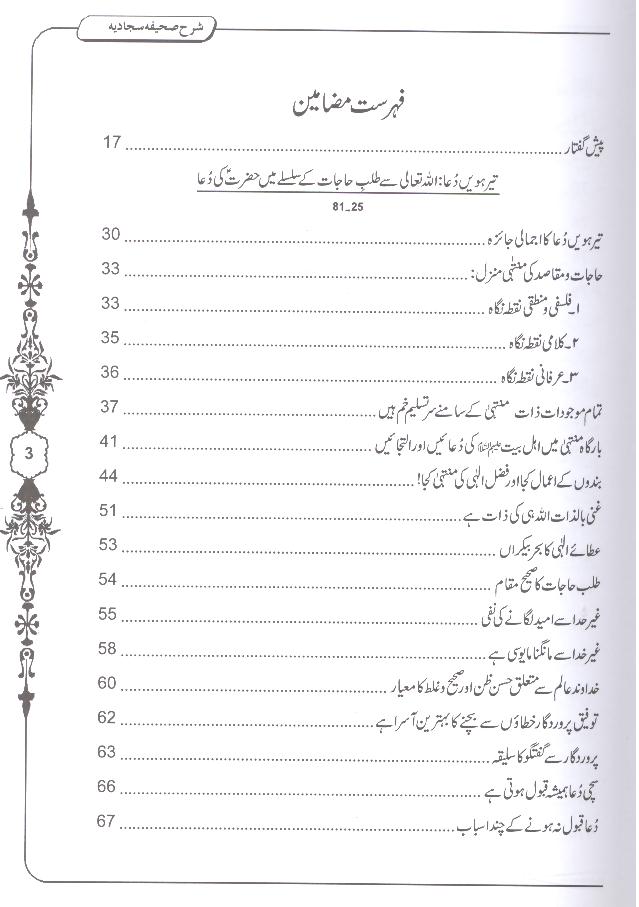 شرح صحیفہ سجادیہ
فہرست مضامین
پیش گفتار ........ 17
تیرہویں دُعا: اللہ تعالیٰ سے طلبِ حاجات کے سلسلے میں حضرتؑ کی دُعا
81-25
تیرہویں دُعا کا اجمالی جائزہ ........ 30
حاجات و مقاصد کی منتہیٰ منزل: ........ 33
۱۔ فلسفی و منطقی نقطہ نگاہ ........ 33
۲۔ کلامی نقطہ نگاہ ........ 35
۳۔ عرفانی نقطہ نگاہ ........ 36
تمام موجودات ذات منتہیٰ کے سامنے سر تسلیم خم ہیں ........ 37
بارگاہ منتہیٰ میں اہل بیت علیہم السلام کی دُعائیں اور التجائیں ........ 41
بندوں کے اعمال کجا اور فضل الٰہی کی منتہیٰ کجا! ........ 44
غنی بالذات اللہ ہی کی ذات ہے ........ 51
عطائے الٰہی کا بحر بیکراں ........ 53
طلب حاجات کا صحیح مقام ........ 54
غیر خدا سے امید لگانے کی نفی ........ 55
غیر خدا سے مانگنا مایوسی ہے ........ 58
خداوند عالم سے متعلق حسن ظن اور صحیح و غلط کا معیار ........ 60
توفیق پروردگار خطاؤں سے بچنے کا بہترین آسرا ہے ........ 62
پروردگار سے گفتگو کا سلیقہ ........ 63
سچی دُعا ہمیشہ قبول ہوتی ہے ........ 66
دُعا قبول نہ ہونے کے چند اسباب ........ 67
3